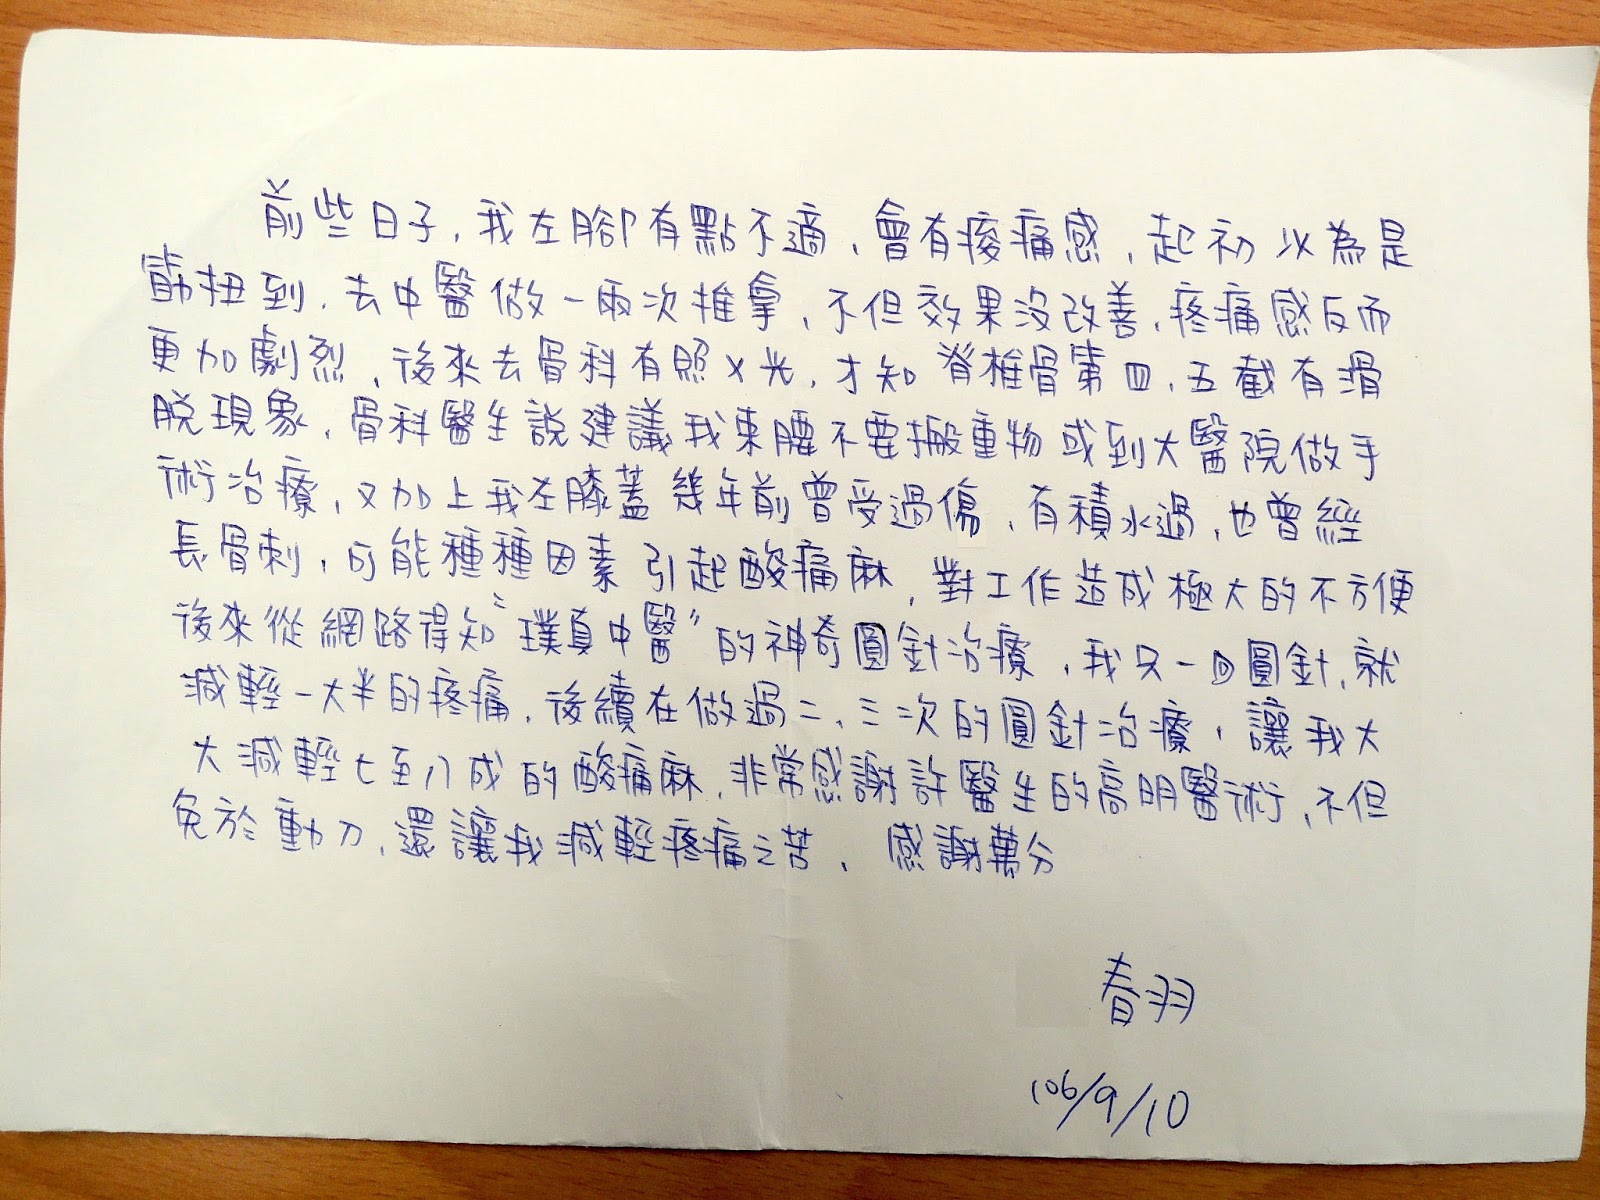 前些日子,我左腳有點不適,會有痠痛感,起初以為是
筋扭到,去中醫做一兩次推拿,不但效果沒改善,疼痛感反而
更加劇烈,後來去骨科有照X光,才知脊椎骨第四、五截有滑
脫現象,骨科醫生說建議我束腰不要搬重物或到大醫院做手
術治療,又加上我左膝蓋幾年前曾受過傷,有積水過,也曾經
長骨刺,可能種種因素引起酸痛麻,對工作造成極大的不方便
後來從網路得知"璞真中醫"的神奇圓針治療,我只一回圓針,就
減輕一大半的疼痛,後續在做過二、三次的圓針治療,讓我大
大減輕七至八成的酸痛麻,非常感謝許醫生的高明醫術,不但
免於動刀,還讓我減輕疼痛之苦,感謝萬分
春羽
106/9/10